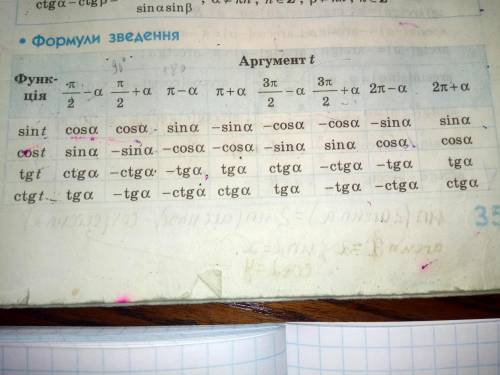 sinαsinβ
• Формули зведення
Функція Аргумент t
π/2 −α π/2 +α π−α π+α 3π/2 −α 3π/2 +α 2π−α 2π+α
sin t cosα cosα sinα −sinα −cosα −cosα −sinα sinα
cos t sinα −sinα −cosα −cosα −sinα sinα cosα cosα
tg t ctgα −ctgα −tgα tgα ctgα −ctgα −tgα tgα
ctg t tgα −tgα −ctgα ctgα tgα −tgα −ctgα ctgα
35